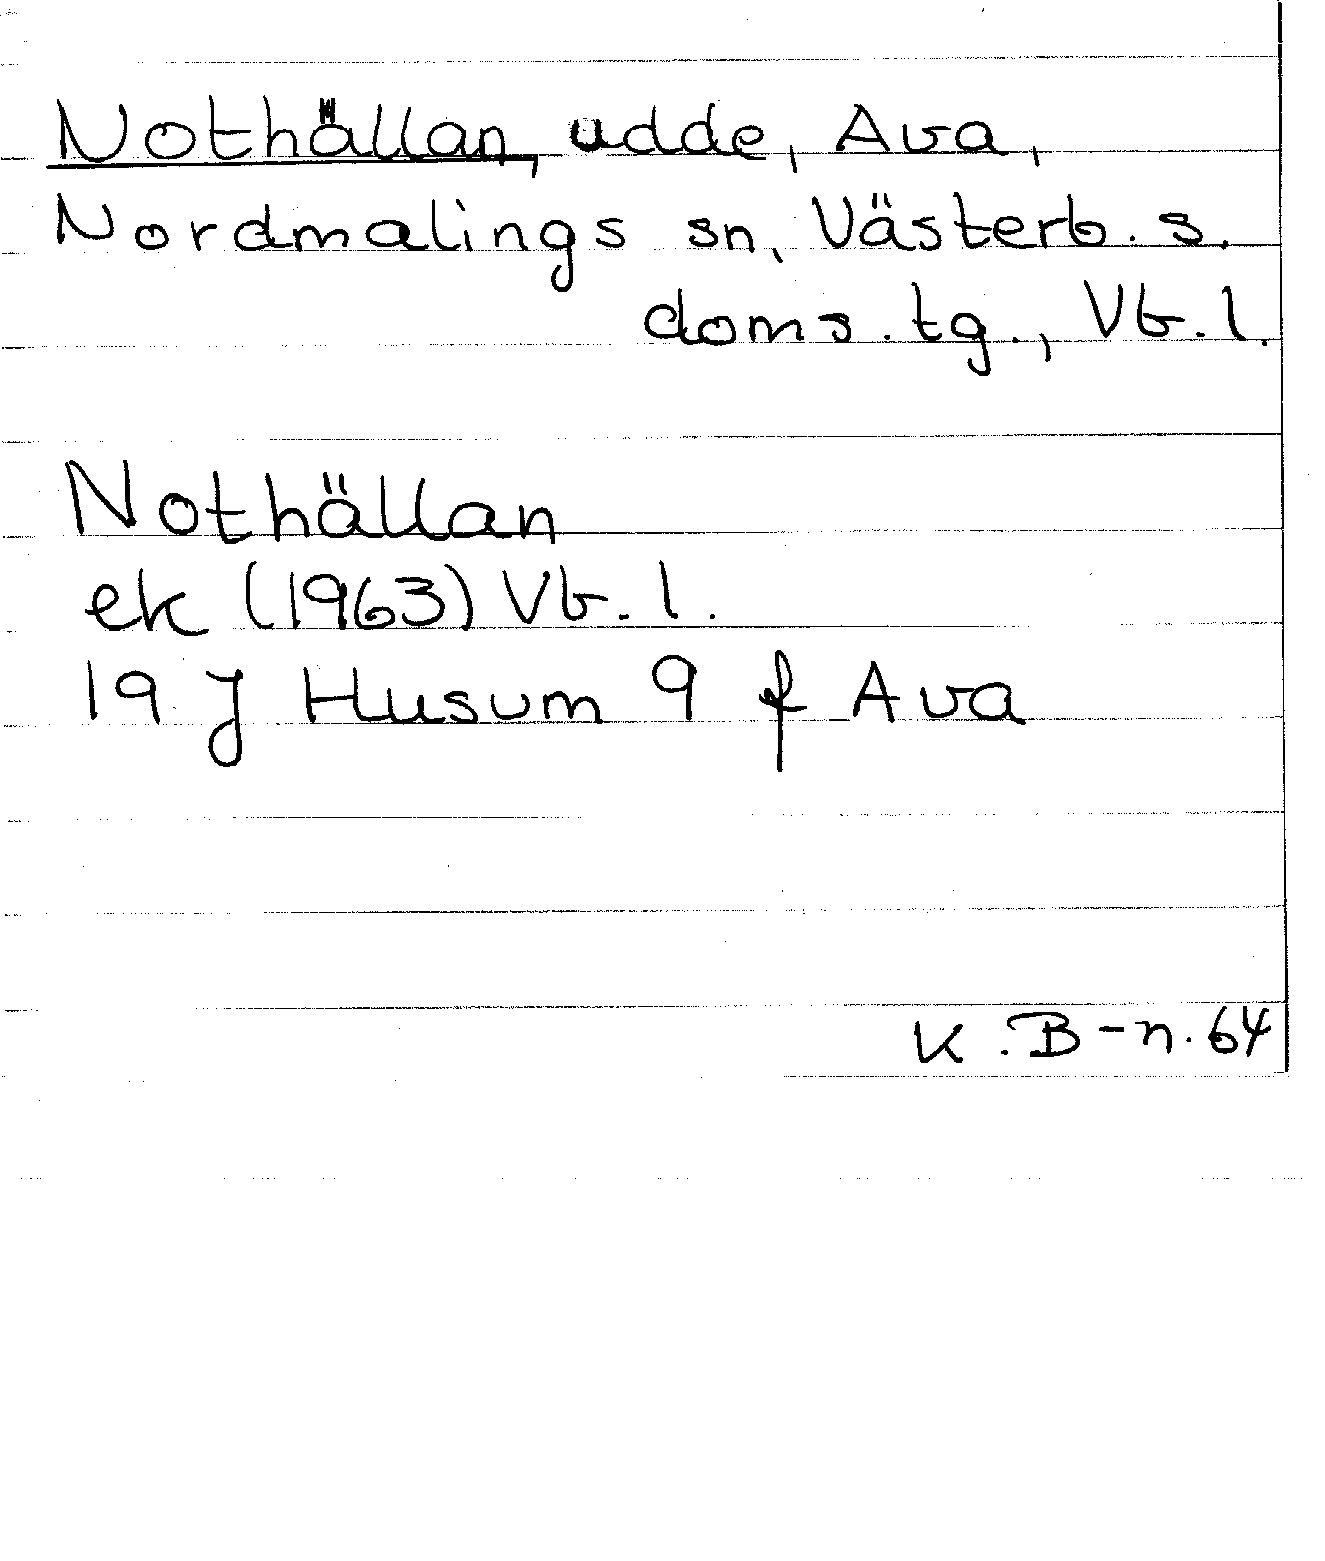 Nothällan, udde, Ava,
Nordmalings sn, Västerb. s.
doms. tg., Vb. l.
Nothällan
ek (1963) Vb. l.
19 J Husum 9 f Ava
K. B-n. 64